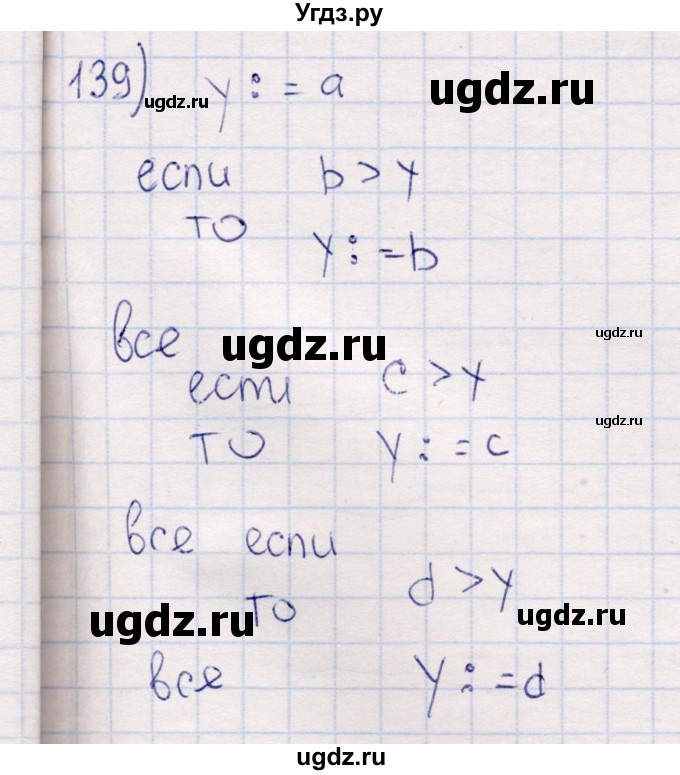 Угдз.ру
139) y := a
ugdz.ru
ugdz.ru
если b > y
то
y := b
ugdz.ru
все
ugdz.ru
если c > y
то y := c
ugdz.ru
все если
d > y
то
ugdz.ru
ugdz.ru
все y := d
ugdz.ru